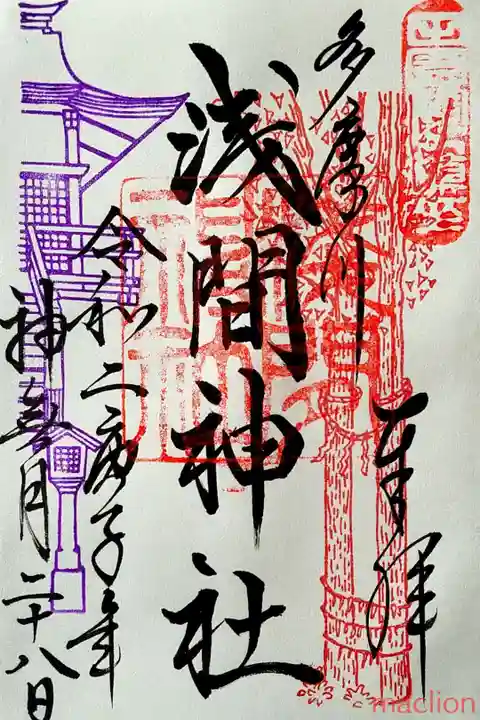 奉拝
多摩川
浅間神社
令和二庚子年
神無月二十八日
maclion